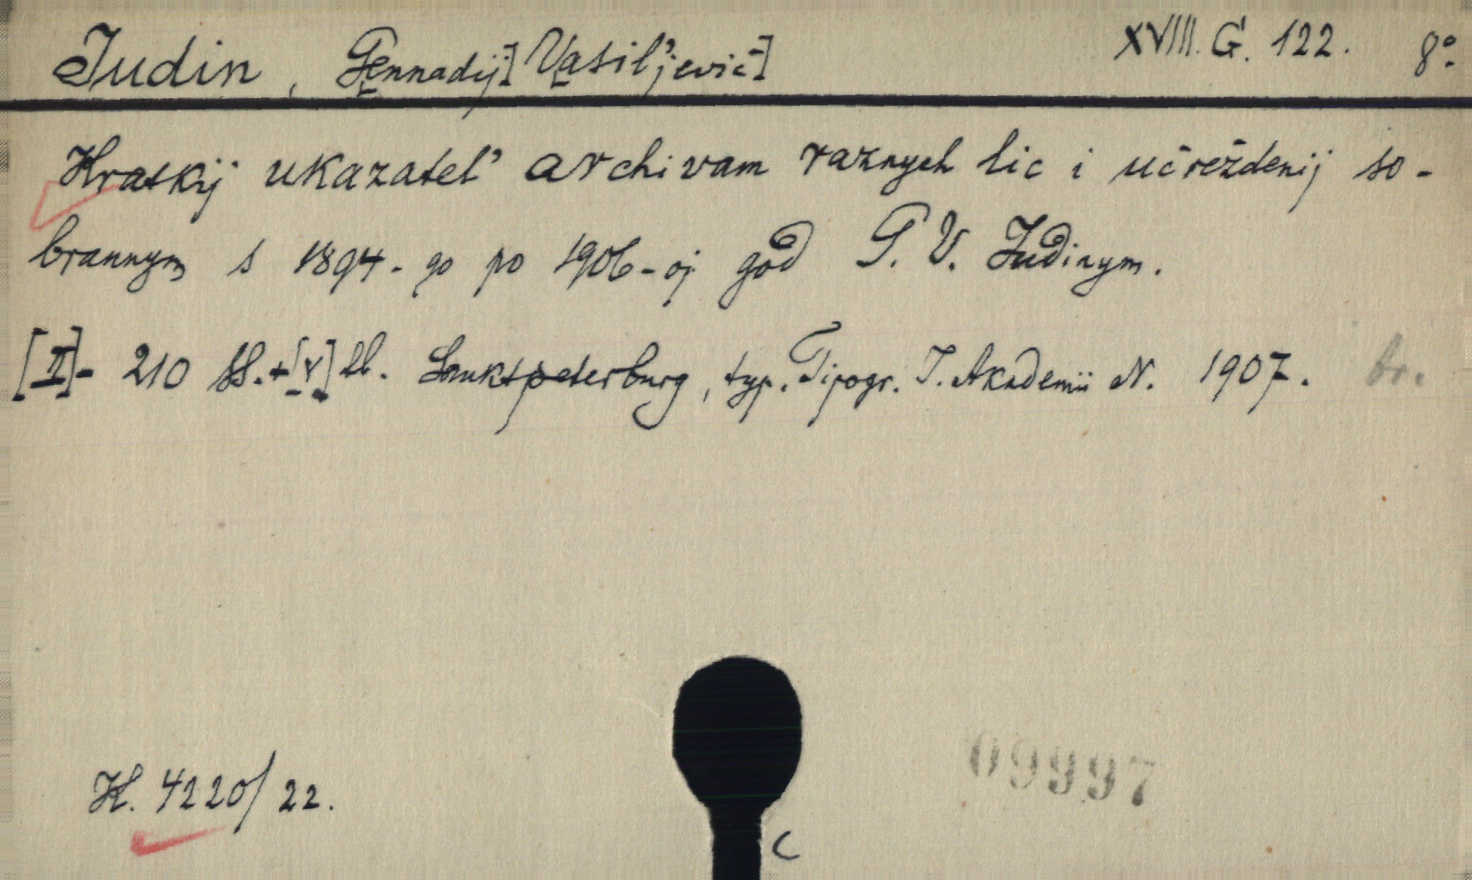 Judin, G[ennadij] V[asil'jevič]
XVIII. G. 122. 8°
Kratkij ukazatel' archivam raznych lic i učreždenij so-
brannym s 1894-go po 1906-oj god G. V. Judinym.
[II]- 210 SS.+[V] ll. Sanktpeterburg, typ. Tipogr. I. Akademii N. 1907. br.
K. 4220/22.
09997
C